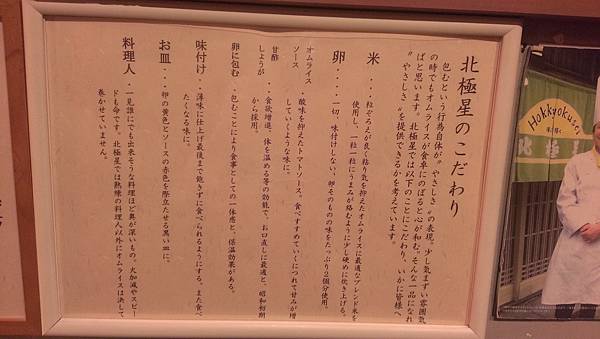 北極星のこだわり
包むという行為自体が〝やさしさ〟の表現。少し気まずい雰囲気
の時でもオムライスが食卓にのぼると心が和む。そんな一品になれ
ばと思います。北極星では以下のことにこだわり、いかに皆様へ
〝やさしさ〟を提供できるかを考えています。
米・・・粒ぞろえが良く粘り気を抑えたオムライスに最適なブレンド米を
使用し、一粒一粒にうまみが絡むように少し硬めに炊き上げる。
卵・・・・一切、味付けしない、卵そのものの味をたっぷり2個分使用。
オムライス
ソース・酸味を抑えたトマトソース。食べすすめていくにつれて甘みが増
していくような味に。
甘酢
しょうが・・食欲増進、体を温める等の効能で、お口直しに最適と、昭和初期
から採用。
卵に包む・包むことにより食事としての一体感と、保温効果がある。
味付け・薄味に仕上げ最後まで飽きずに食べられるようにする。また食べ
たくなる味に。
お皿・・・卵の黄色とソースの赤色を際立たせる黒い皿に。
料理人・一見誰にでも出来そうな料理ほど奥が深いもの。火加減やスピー
ドも命です。北極星では熟練の料理人以外にオムライスは決して
巻かせていません。
Hokkyokusei